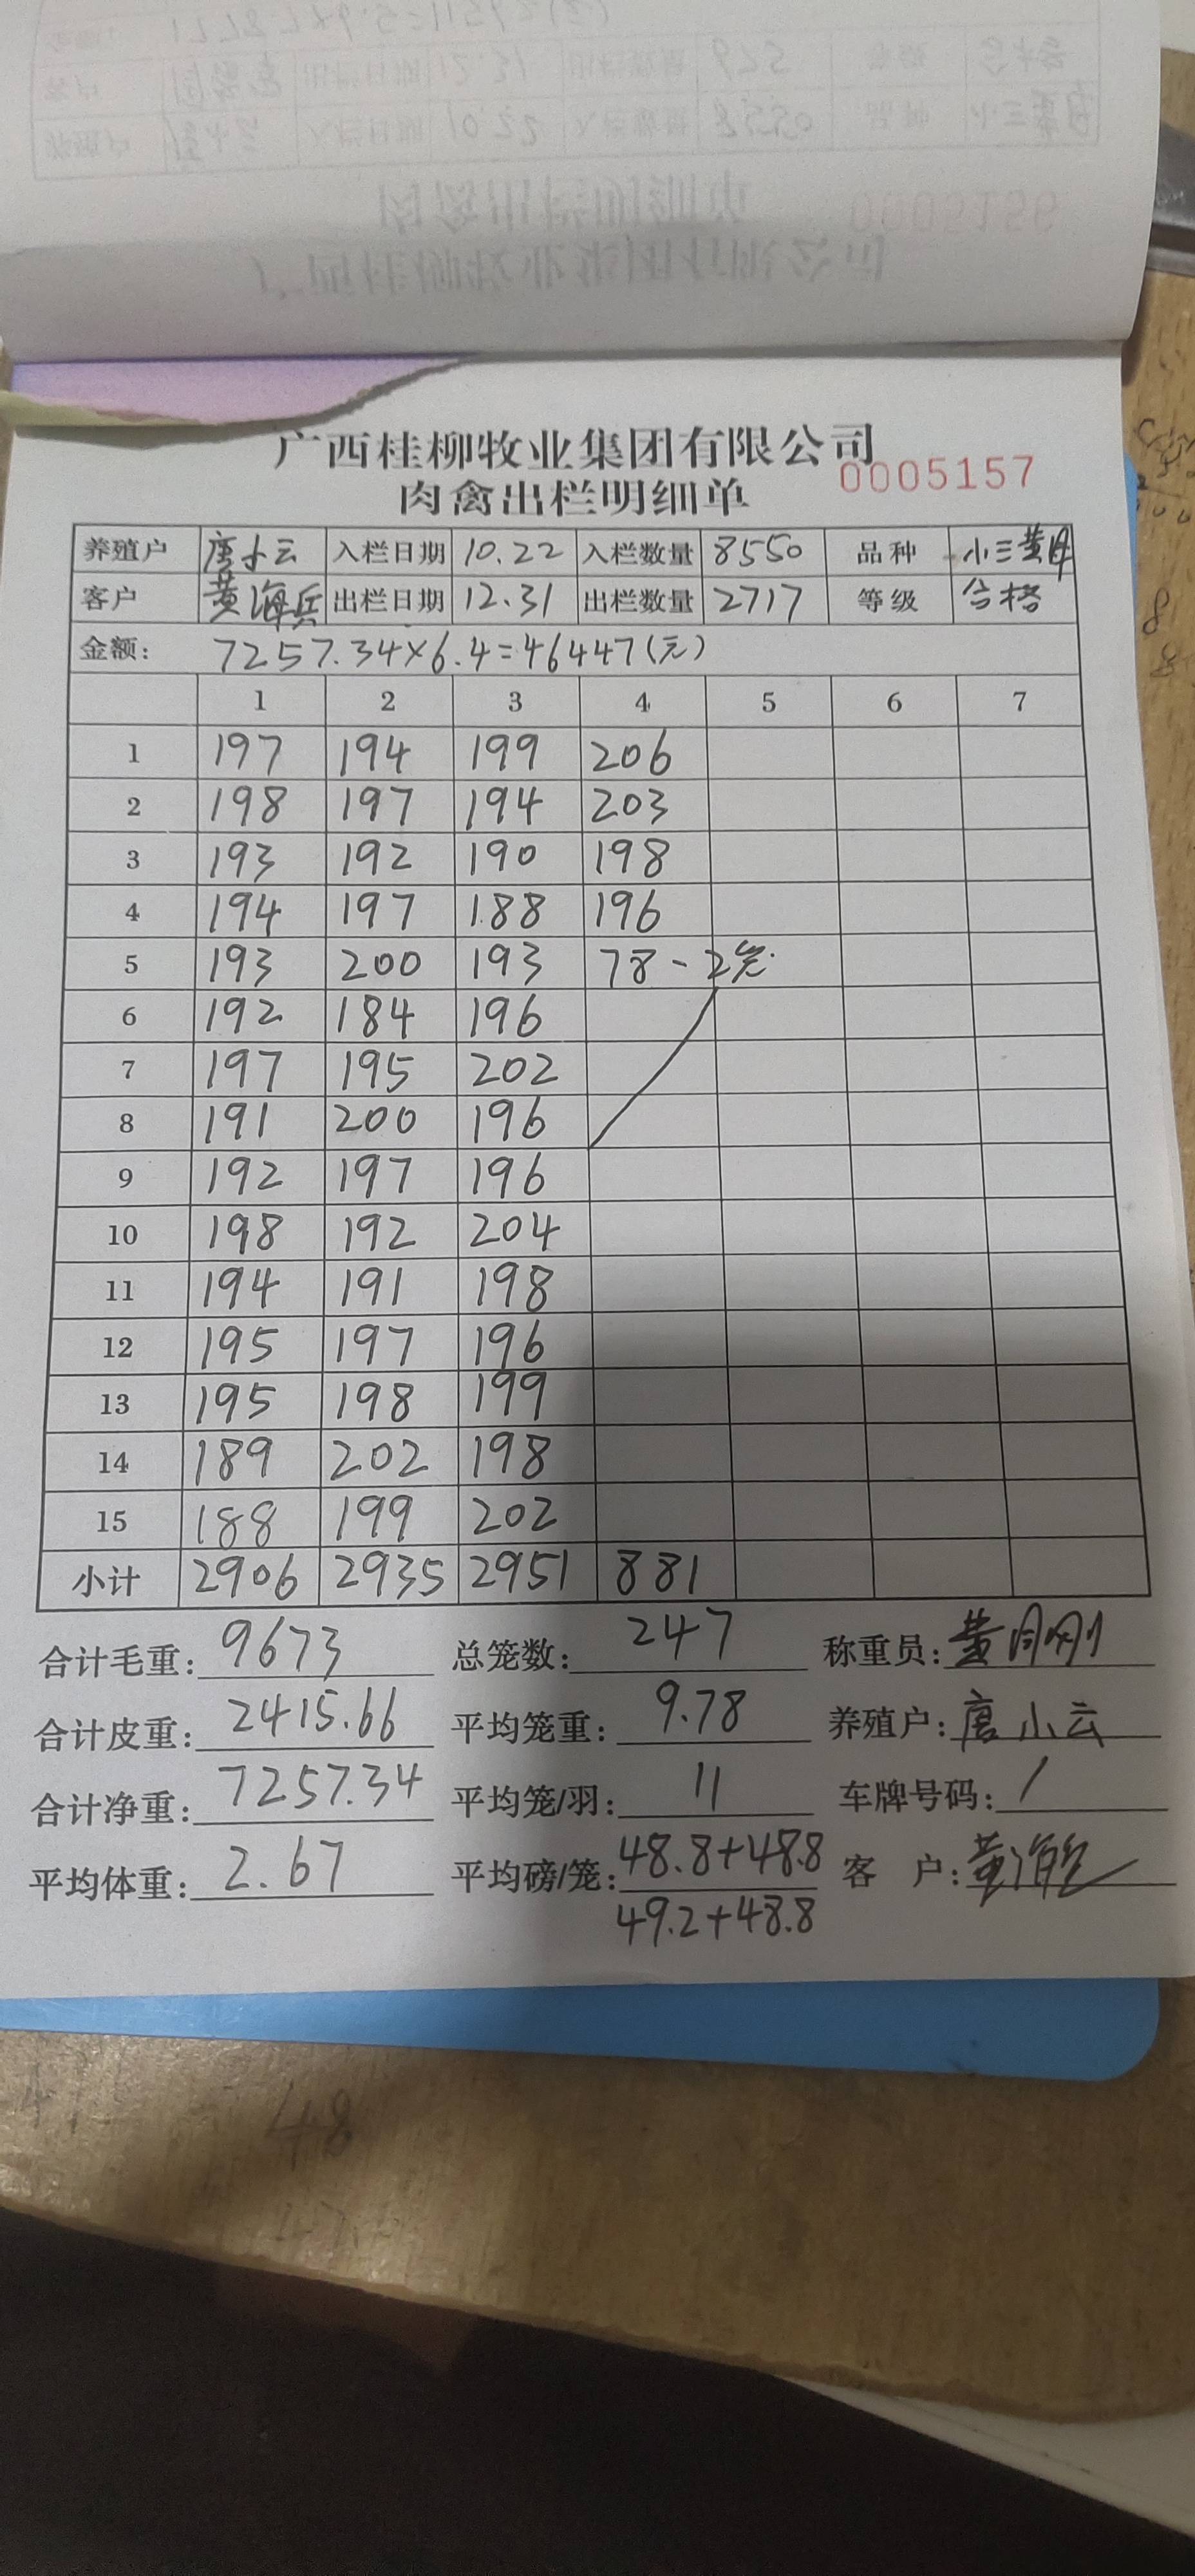 0005156
广西桂柳牧业集团有限公司
肉禽出栏明细单 0005157
养殖户 唐小云 入栏日期 10.22 入栏数量 8550 品种 小三黄母
客户 黄海兵 出栏日期 12.31 出栏数量 2717 等级 合格
金额: 7257.34×6.4=46447(元)
1 2 3 4 5 6 7
1 197 194 199 206
2 198 197 194 203
3 193 192 190 198
4 194 197 188 196
5 193 200 193 78-2笼
6 192 184 196
7 197 195 202
8 191 200 196
9 192 197 196
10 198 192 204
11 194 191 198
12 195 197 196
13 195 198 199
14 189 202 198
15 188 199 202
小计 2906 2935 2951 881
合计毛重: 9673 总笼数: 247 称重员: 黄刚
合计皮重: 2415.66 平均笼重: 9.78 养殖户: 唐小云
合计净重: 7257.34 平均笼/羽: 11 车牌号码: /
平均体重: 2.67 平均磅/笼: 48.8+48.8 客 户:
49.2+48.8
48